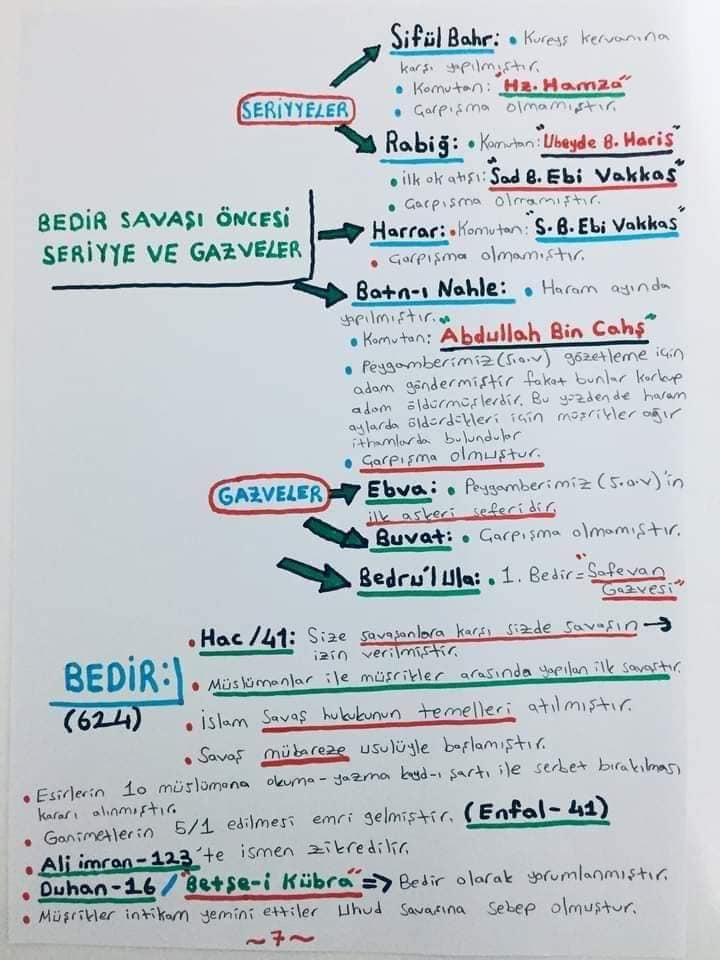 Sifül Bahr: • Kureyş kervanına
karşı yapılmıştır.
• Komutan: "Hz. Hamza"
• Çarpışma olmamıştır.
SERİYYELER
Rabiğ: • Komutan: "Ubeyde B. Haris"
• ilk ok atışı: "Sad B. Ebi Vakkas"
• Çarpışma olmamıştır.
BEDİR SAVAŞI ÖNCESİ
SERİYYE VE GAZVELER
Harrar: • Komutan: "S. B. Ebi Vakkas"
• Çarpışma olmamıştır.
Batn-ı Nahle: • Haram ayında
yapılmıştır.
• Komutan: "Abdullah Bin Cahş"
• Peygamberimiz (s.a.v) gözetleme için
adam göndermiştir fakat bunlar korkup
adam öldürmüşlerdir. Bu yüzdende haram
aylarda öldürdükleri için müşrikler ağır
ithamlarda bulundular
• Çarpışma olmuştur.
GAZVELER
Ebva: • Peygamberimiz (s.a.v)'in
ilk askeri seferidir.
Buvat: • Çarpışma olmamıştır.
Bedru'l Ula: • 1. Bedir = "Safevan
Gazvesi"
BEDİR:
(624)
• Hac/41: Size savaşanlara karşı sizde savaşın →
izin verilmiştir.
• Müslümanlar ile müşrikler arasında yapılan ilk savaştır.
• İslam Savaş hukukunun temelleri atılmıştır.
• Savaş mübareze usulüyle başlamıştır.
• Esirlerin 10 müslümana okuma-yazma kayd-ı şartı ile serbet bırakılması
kararı alınmıştır.
• Ganimetlerin 5/1 edilmesi emri gelmiştir. (Enfal-41)
• Ali imran-123'te ismen zikredilir.
• Duhan-16 / "Betşe-i Kübra" => Bedir olarak yorumlanmıştır.
• Müşrikler intikam yemini ettiler Uhud savaşına sebep olmuştur.
~7~